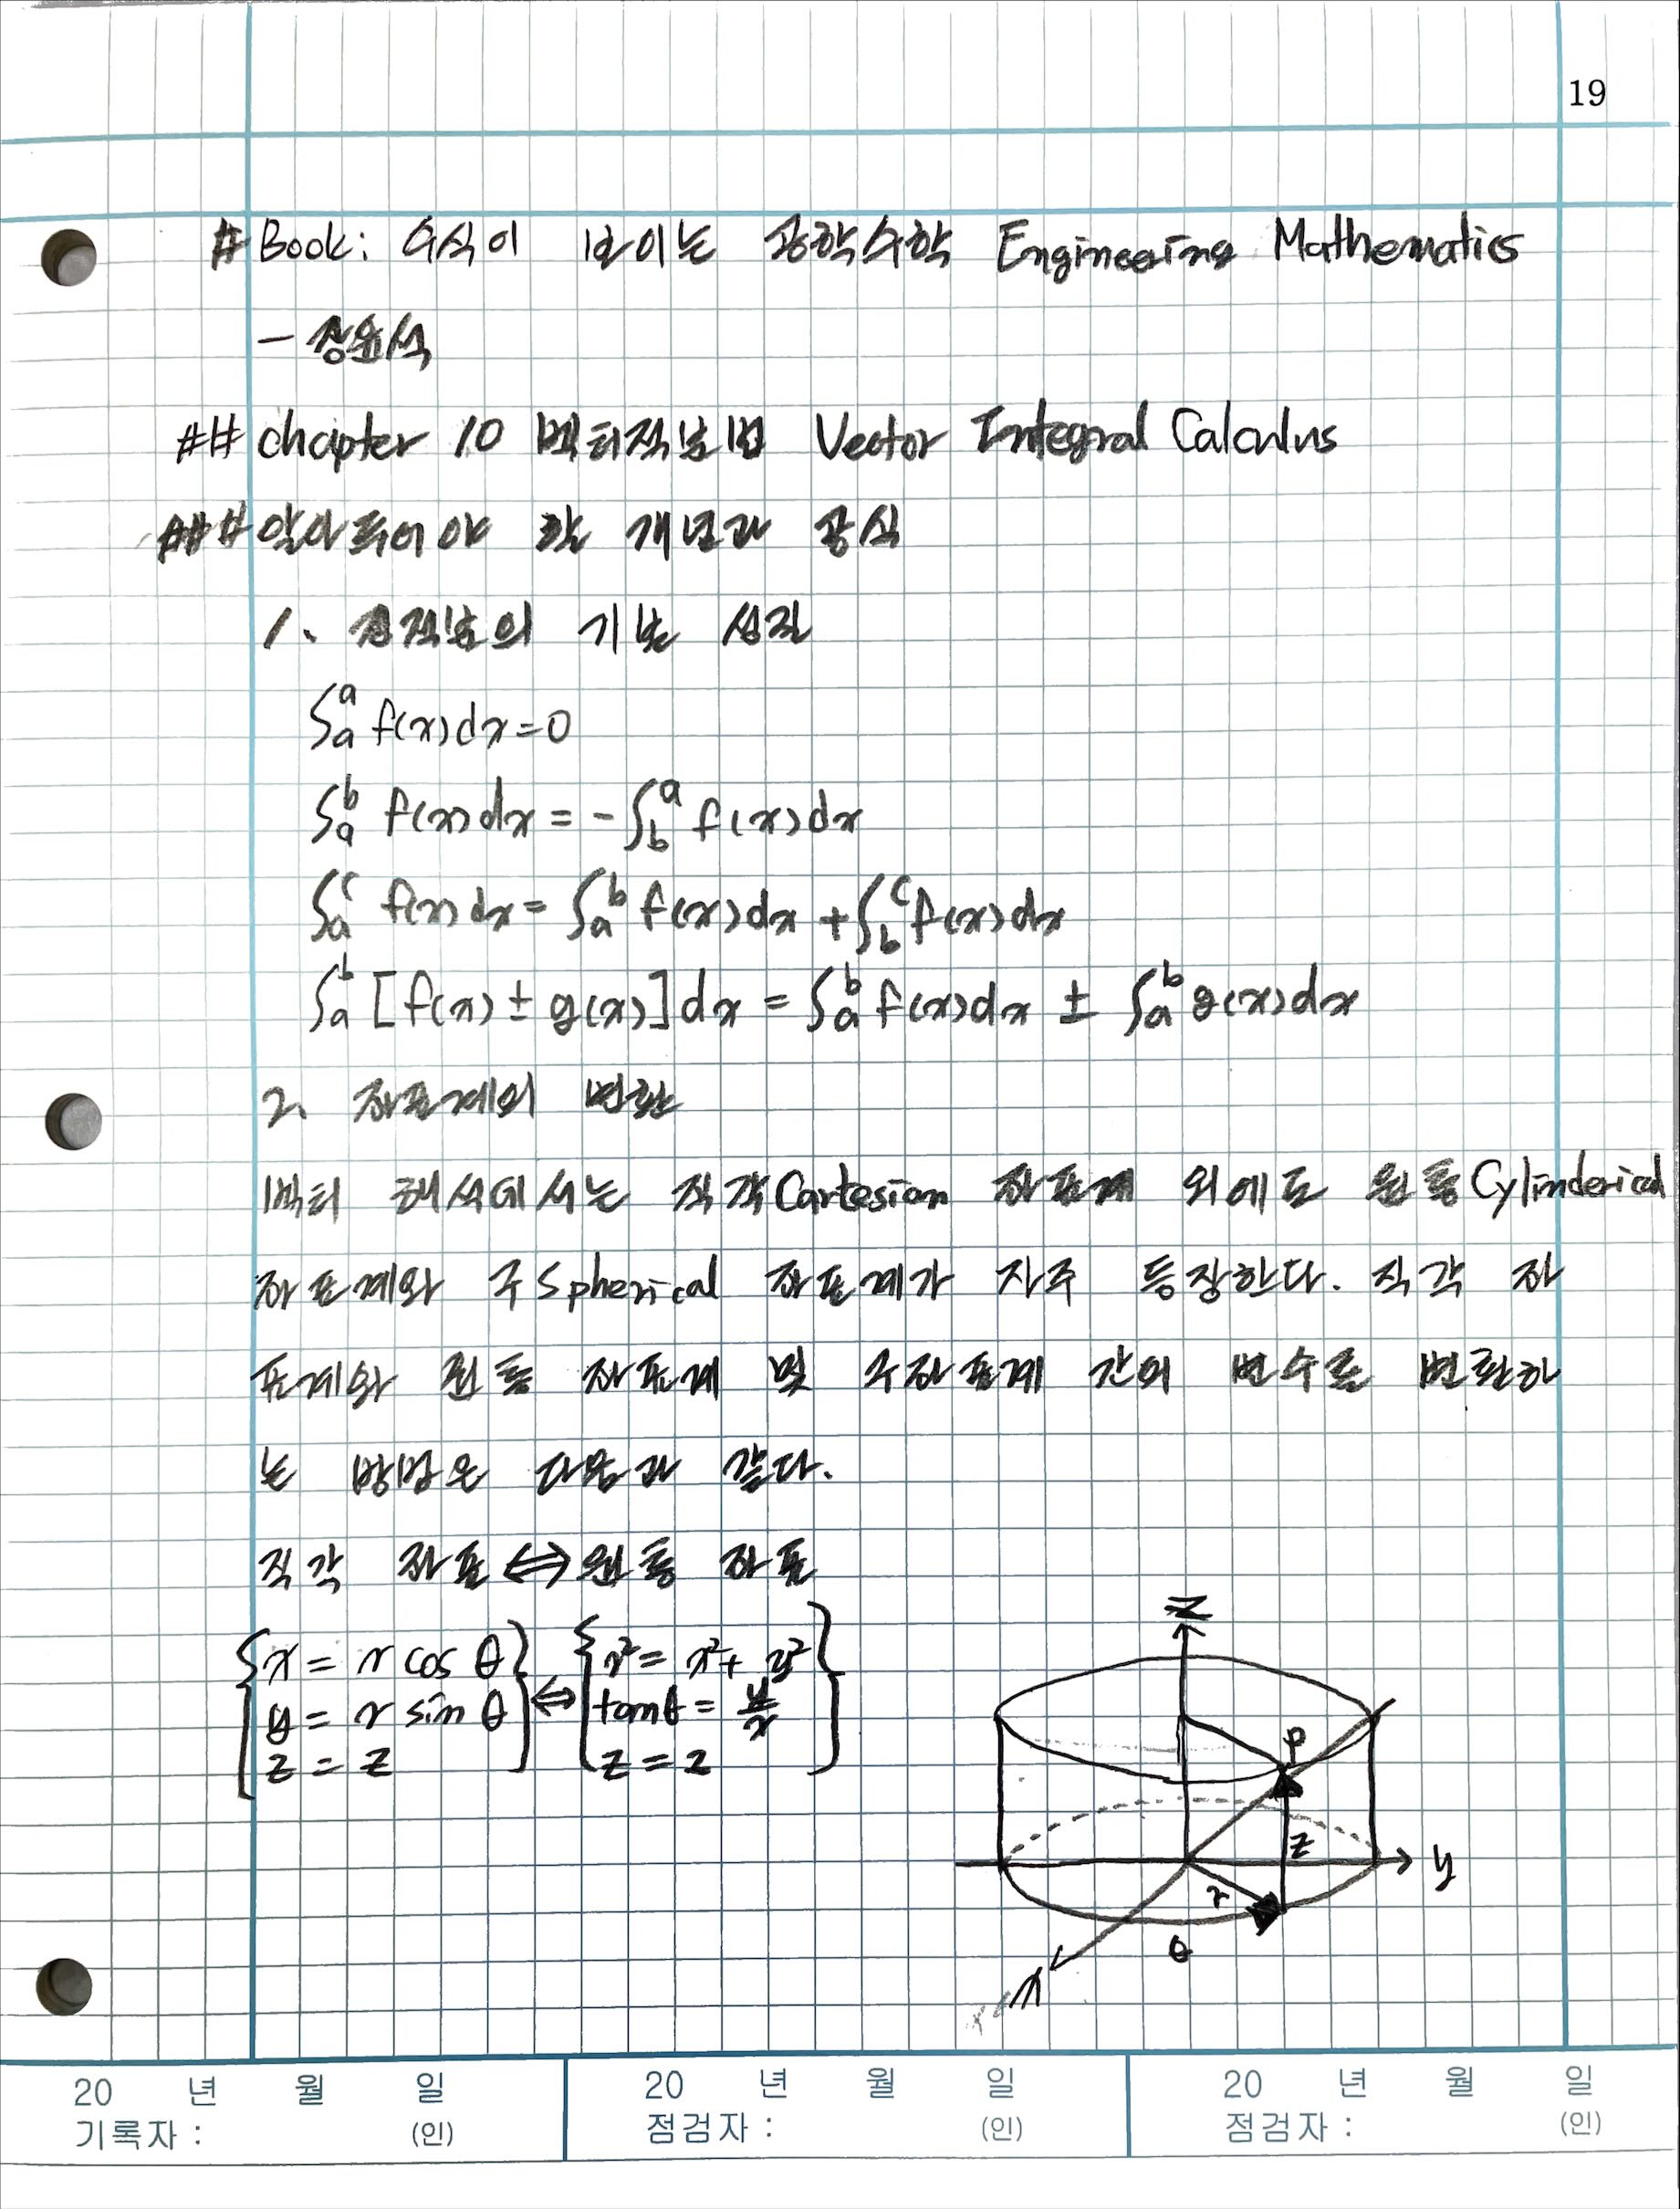 19
# Book: 수식이 보이는 공학수학 Engineering Mathematics
- 장윤석
## chapter 10 벡터적분법 Vector Integral Calculus
### 알아두어야 할 개념과 공식
1. 정적분의 기본 성질
∫ₐᵃ f(x)dx=0
∫ₐᵇ f(x)dx = -∫_b^a f(x)dx
∫ₐᶜ f(x)dx = ∫ₐᵇ f(x)dx + ∫_b^c f(x)dx
∫ₐᵇ [f(x) ± g(x)]dx = ∫ₐᵇ f(x)dx ± ∫ₐᵇ g(x)dx
2. 좌표계의 변환
벡터 해석에서는 직각Cartesian 좌표계 외에도 원통Cylinderical
좌표계와 구Spherical 좌표계가 자주 등장한다. 직각 좌
표계와 원통 좌표계 및 구좌표계 간의 변수를 변환하
는 방법은 다음과 같다.
직각 좌표 ⇔ 원통 좌표
{x = r cos θ} {r² = x² + y²}
{y = r sin θ} ⇔ {tanθ = y/x}
{z = z} {z = z}
z
P
z
y
r
θ
x
20 년 월 일 20 년 월 일 20 년 월 일
기록자 : (인) 점검자 : (인) 점검자 : (인)